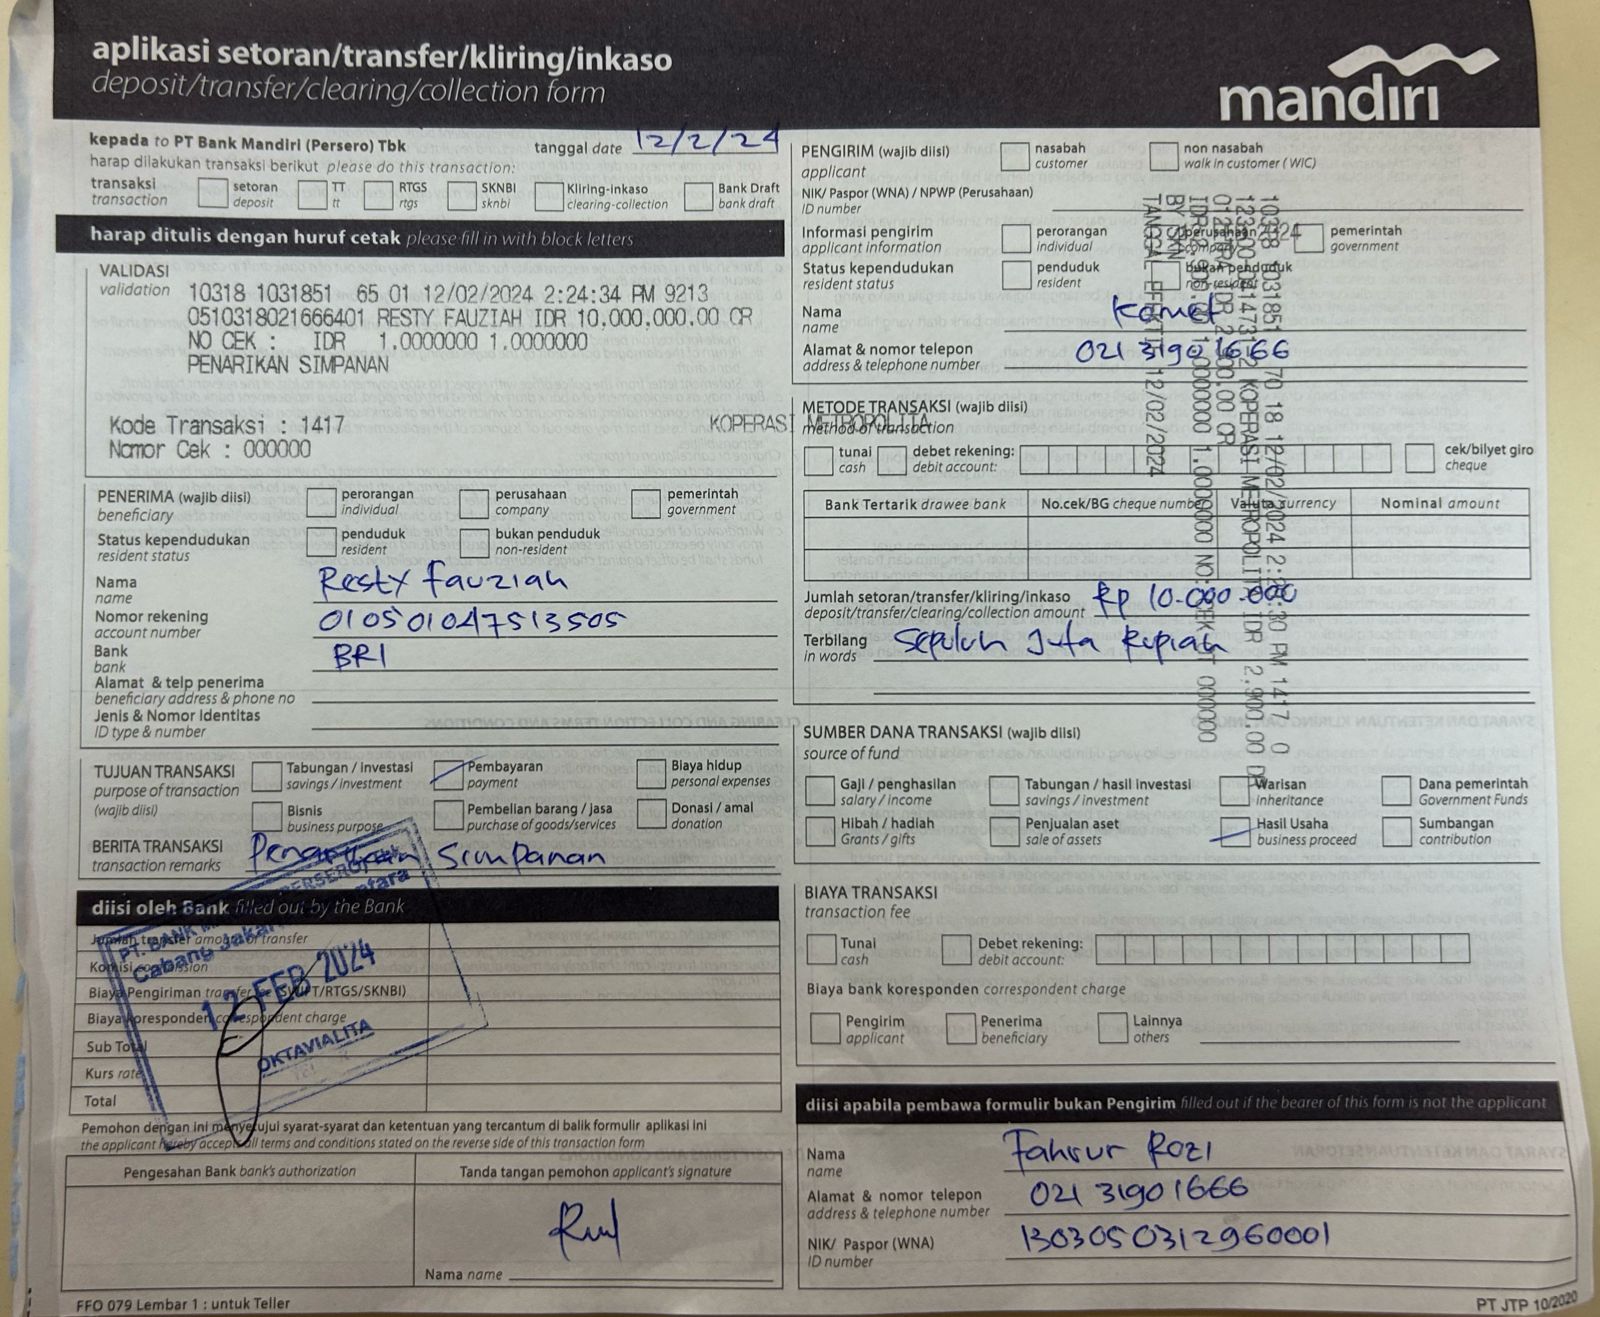 aplikasi setoran/transfer/kliring/inkaso
deposit/transfer/clearing/collection form
mandiri
kepada to PT Bank Mandiri (Persero) Tbk
tanggal date 12/2/24
harap dilakukan transaksi berikut please do this transaction:
transaksi
transaction
setoran
deposit
TT
tt
RTGS
rtgs
SKNBI
sknbi
Kliring-inkaso
clearing-collection
Bank Draft
bank draft
harap ditulis dengan huruf cetak please fill in with block letters
VALIDASI
validation
10318 1031851 65 01 12/02/2024 2:24:34 PM 9213
0510318021666401 RESTY FAUZIAH IDR 10,000,000.00 CR
NO CEK : IDR 1.0000000 1.0000000
PENARIKAN SIMPANAN
Kode Transaksi : 1417
Nomor Cek : 000000
KOPERASI METROPOLITA
PENERIMA (wajib diisi)
beneficiary
perorangan
individual
perusahaan
company
pemerintah
government
Status kependudukan
resident status
penduduk
resident
bukan penduduk
non-resident
Nama
name
Resty Fauziah
Nomor rekening
account number
010501047513505
Bank
bank
BRI
Alamat & telp penerima
beneficiary address & phone no
Jenis & Nomor Identitas
ID type & number
TUJUAN TRANSAKSI
purpose of transaction
(wajib diisi)
Tabungan / investasi
savings / investment
Pembayaran
payment
Biaya hidup
personal expenses
Bisnis
business purpose
Pembelian barang / jasa
purchase of goods/services
Donasi / amal
donation
BERITA TRANSAKSI
transaction remarks
Penarikan Simpanan
diisi oleh Bank filled out by the Bank
Jumlah transfer amount of transfer
Komisi commission
Biaya Pengiriman transfer fee (SWIFT/RTGS/SKNBI)
Biaya koresponden correspondent charge
Sub Total
Kurs rate
Total
12 FEB 2024
OKTAVIALITA
Pemohon dengan ini menyetujui syarat-syarat dan ketentuan yang tercantum di balik formulir aplikasi ini
the applicant hereby accepts all terms and conditions stated on the reverse side of this transaction form
Pengesahan Bank bank's authorization
Tanda tangan pemohon applicant's signature
Nama name
FFO 079 Lembar 1 : untuk Teller
PENGIRIM (wajib diisi)
applicant
nasabah
customer
non nasabah
walk in customer ( WIC)
NIK/ Paspor (WNA) / NPWP (Perusahaan)
ID number
Informasi pengirim
applicant information
perorangan
individual
perusahaan
company
pemerintah
government
Status kependudukan
resident status
penduduk
resident
bukan penduduk
non-resident
Nama
name
Komet
Alamat & nomor telepon
address & telephone number
021 31901666
METODE TRANSAKSI (wajib diisi)
method of transaction
tunai
cash
debet rekening:
debit account:
cek/bilyet giro
cheque
Bank Tertarik drawee bank
No.cek/BG cheque number
Valuta currency
Nominal amount
Jumlah setoran/transfer/kliring/inkaso
deposit/transfer/clearing/collection amount
Rp 10.000.000
Terbilang
in words
Sepuluh Juta Rupiah
SUMBER DANA TRANSAKSI (wajib diisi)
source of fund
Gaji / penghasilan
salary / income
Tabungan / hasil investasi
savings / investment
Warisan
inheritance
Dana pemerintah
Government Funds
Hibah / hadiah
Grants / gifts
Penjualan aset
sale of assets
Hasil Usaha
business proceed
Sumbangan
contribution
BIAYA TRANSAKSI
transaction fee
Tunai
cash
Debet rekening:
debit account:
Biaya bank koresponden correspondent charge
Pengirim
applicant
Penerima
beneficiary
Lainnya
others
diisi apabila pembawa formulir bukan Pengirim filled out if the bearer of this form is not the applicant
Nama
name
Fahrur Rozi
Alamat & nomor telepon
address & telephone number
021 31901666
NIK/ Paspor (WNA)
ID number
1303050312960001
PT JTP 10/2020
TANGGAL EFEKTIF 12/02/2024